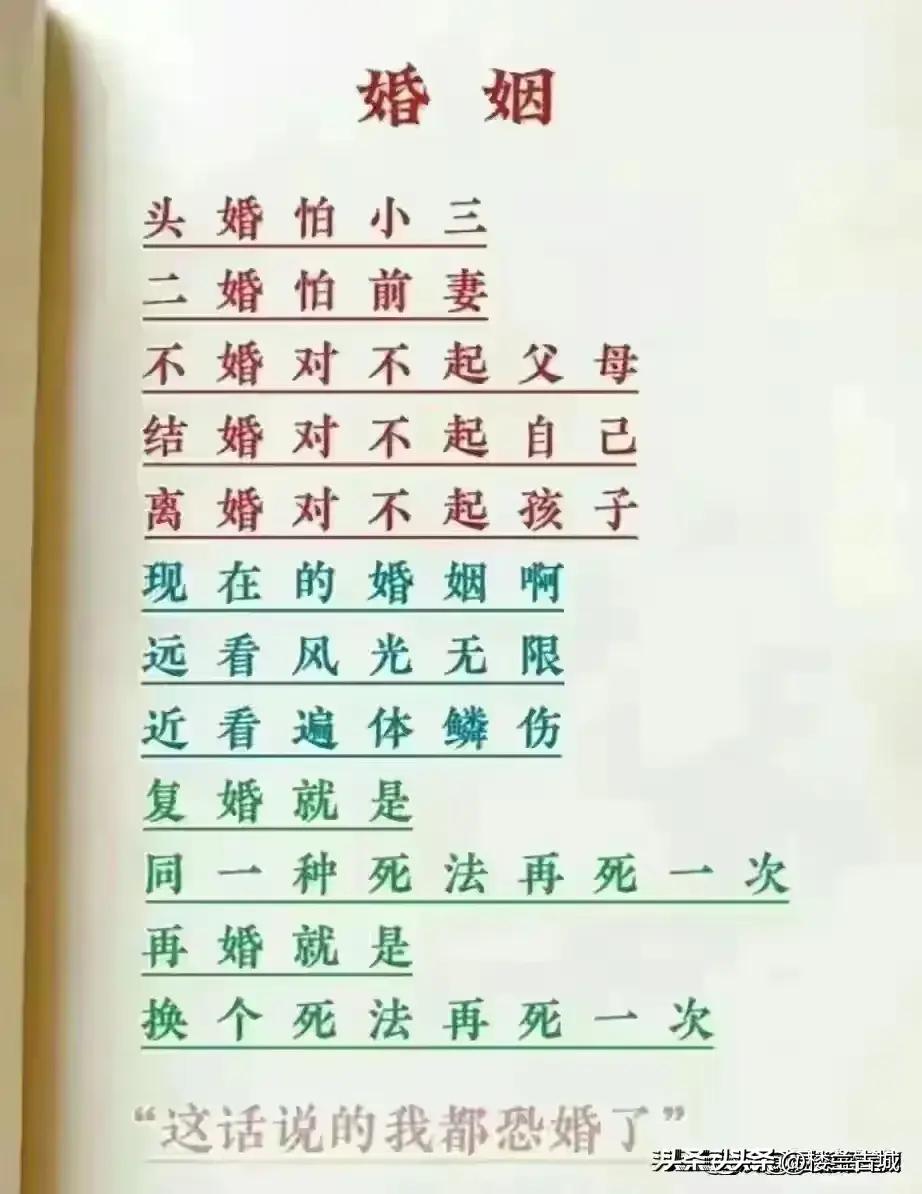 婚姻
头婚怕小三
二婚怕前妻
不婚对不起父母
结婚对不起自己
离婚对不起孩子
现在的婚姻啊
远看风光无限
近看遍体鳞伤
复婚就是
同一种死法再死一次
再婚就是
换个死法再死一次
“这话说的我都恐婚了”
头条 @楼兰古城